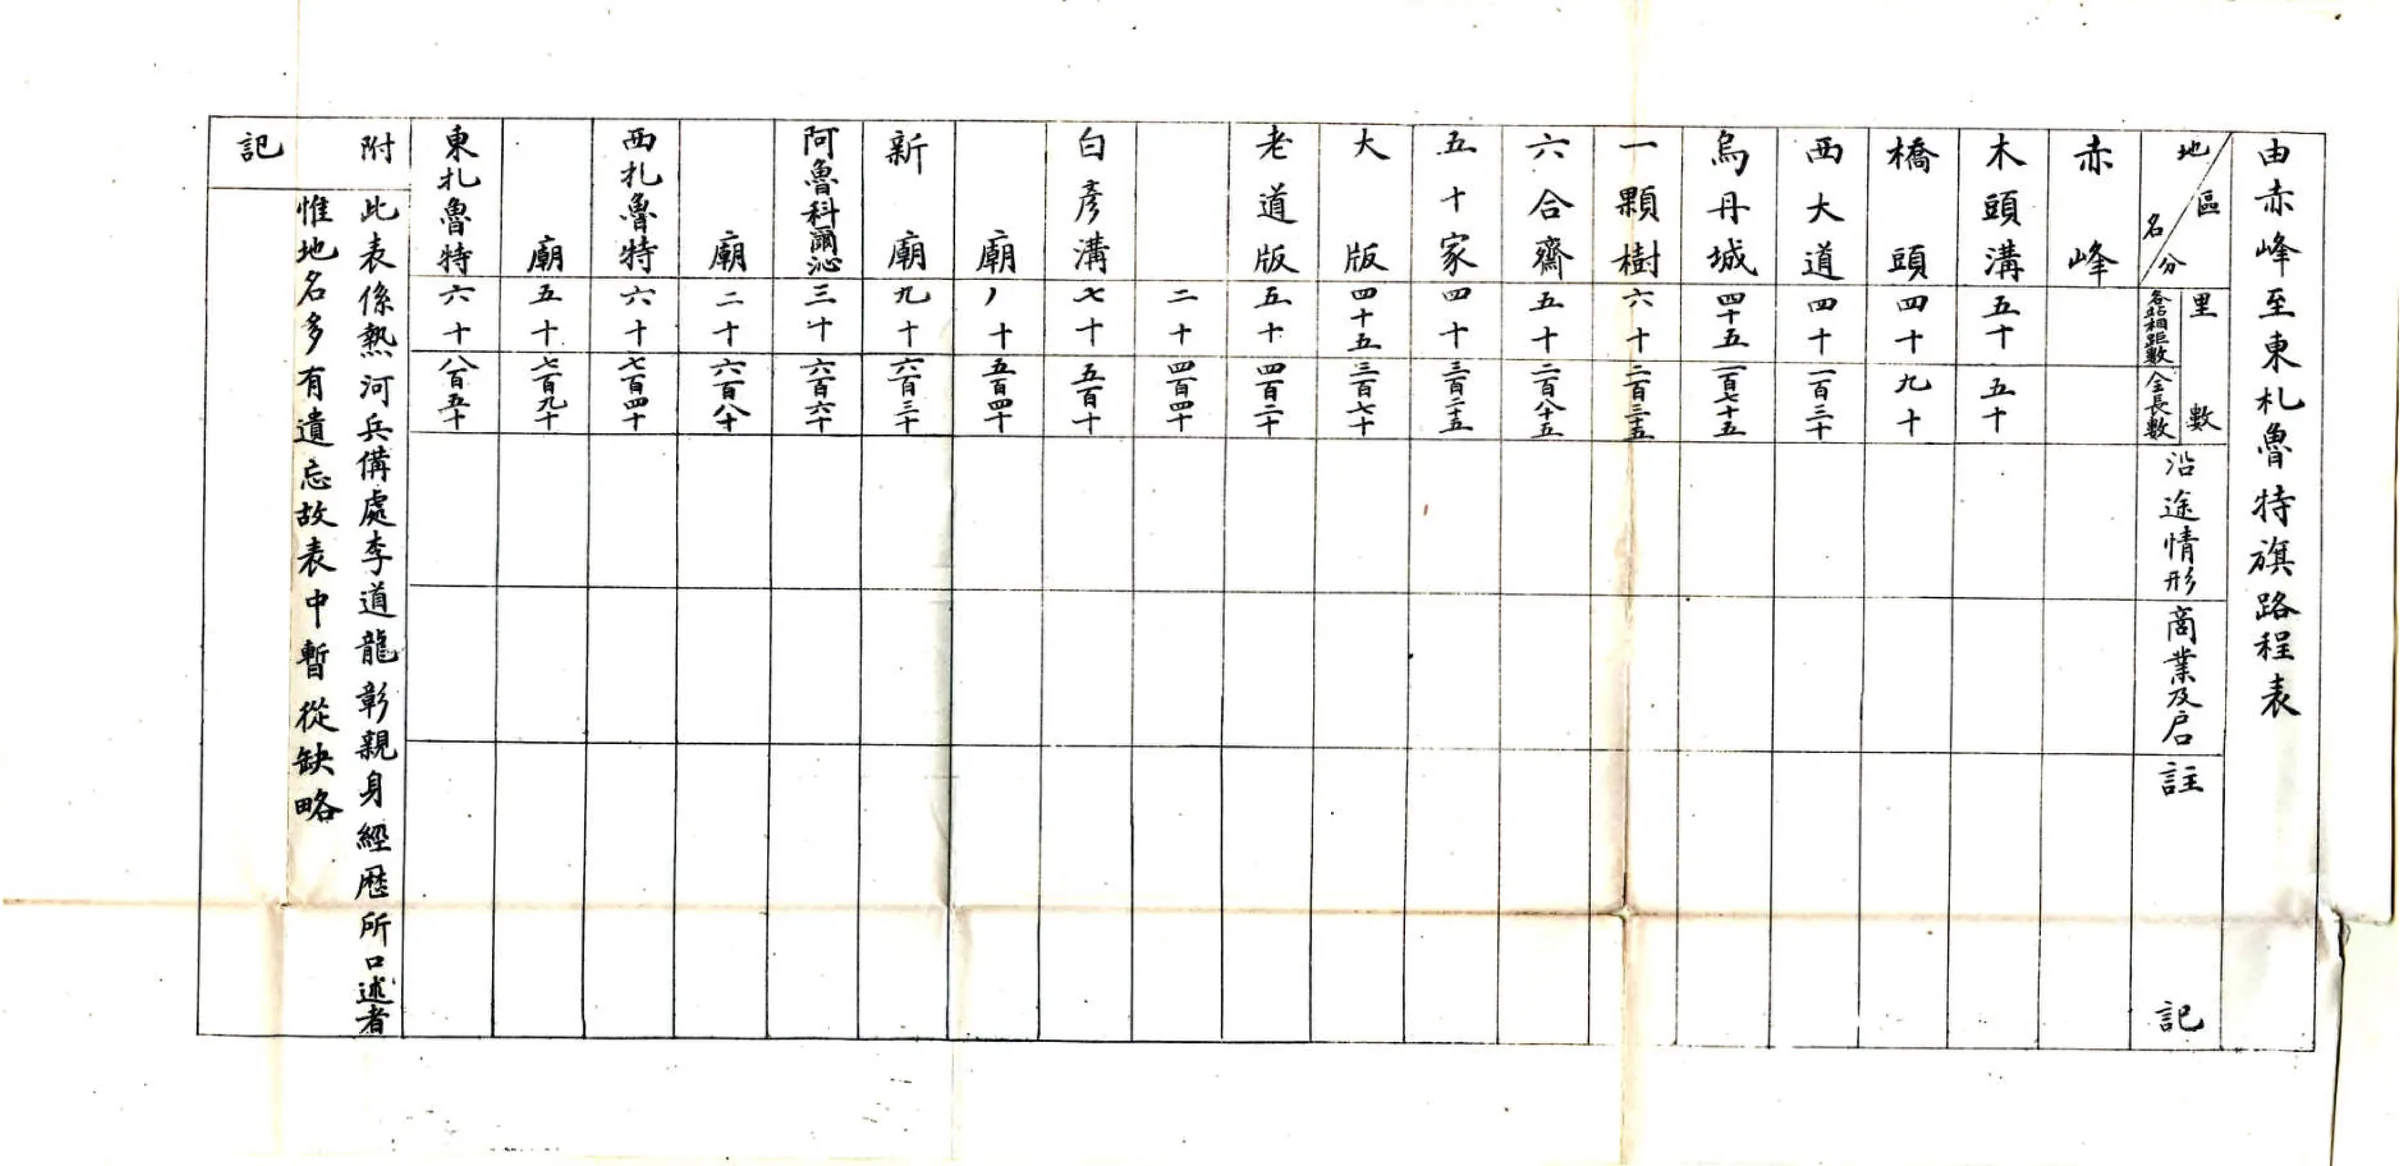 由赤峰至東札魯特旗路程表
地名
區分
里數
各站相距數
全長數
沿途情形
商業及户
註記
赤峰
木頭溝 五十 五十
橋頭 四十 九十
西大道 四十 一百三十
烏丹城 四十五 一百七十五
一顆樹 六十 二百三十五
六合齋 五十 二百八十五
五十家 四十 三百二十五
大版 四十五 三百七十
老道版 五十 四百二十
二十 四百四十
白彥溝 七十 五百十
廟 十 五百四十
新廟 九十 六百三十
阿魯科爾沁 三十 六百六十
廟 二十 六百八十
西札魯特 六十 七百四十
廟 五十 七百九十
東札魯特 六十 八百五十
附記
此表係熱河兵備處李道龍彰親身經歷所口述者
惟地名多有遺忘故表中暫從缺略